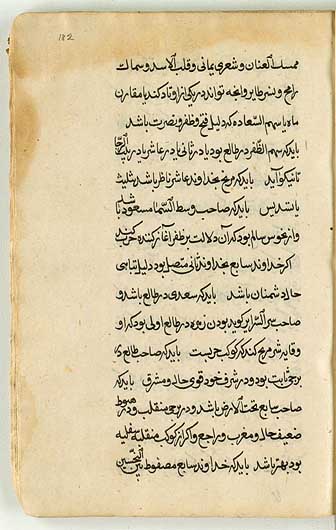 182
ممسك العنان و شعری یمانی و قلب الاسد و سماك
رامح و نسر طایر و آنچه تواند در یکی از اوتاد کند یا مقارن
ماه یا سهم السعاده که دلیل فتح و ظفر و نصرت باشد
باید که سهم الظفر در طالع بود یا در ثانی یا در عاشر یا در
ثانی کو آید باید که مریخ بخداوند عاشر ناظر باشد بتثلیث
یا بتسدیس باید که صاحب وسط السما مسعود باشد
و از نحوس سالم بود که آن دلالت بر ظفر آغاز کننده حرب کند
اگر خداوند سابع بخداوند ثانی متصل بود دلیل تباهی
حال دشمنان باشد باید که سعدی در طالع باشد و
صاحب سر الاسرار گوید بودن زهره در طالع اولی بود که او
وقایه شر مریخ کند که کوکب حربست باید که صاحب طالع در
برج ثابت بود و در شرف خود قوی حال و مشرق باید که
صاحب سابع تحت الارض باشد و در برج منقلب و در هبوط
ضعیف حال و مغرب و راجع و اگر از کوکب منقلبه سفلیه
بود بهتر باشد باید که خداوند سابع مضغوط بین النحسین